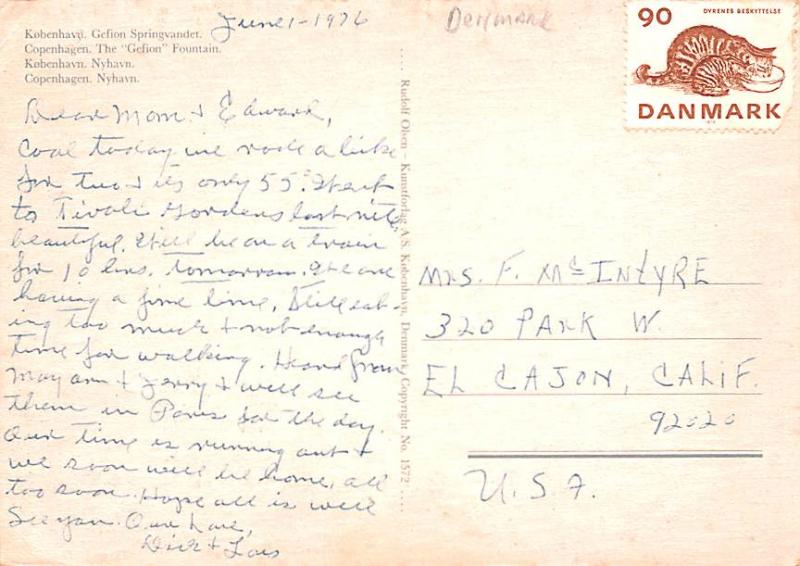 København. Gefion Springvandet.
Copenhagen. The "Gefion" Fountain.
København. Nyhavn.
Copenhagen. Nyhavn.
June 1 - 1976
Denmark
90
DYRENES BESKYTTELSE
DANMARK
Dear Mom + Edward,
Cool today we rode a bike
for two + its only 55°. Went
to Tivoli Gardens last nite,
beautiful. Will be on a train
for 10 hrs. tomorrow. We are
having a fine time. Still eat-
ing too much + not enough
time for walking. Heard from
Mary Ann + Jerry + will see
them in Paris for the day.
Our time is running out +
we soon will be home, all
too soon. Hope all is well
See you. Our Love,
Dick + Lois
Rudolf Olsen - Kunstforlag A/S. København, Denmark. Copyright No. 1572
MRS. F. McINTYRE
320 PARK W.
EL CAJON, CALIF.
92020
U.S.A.